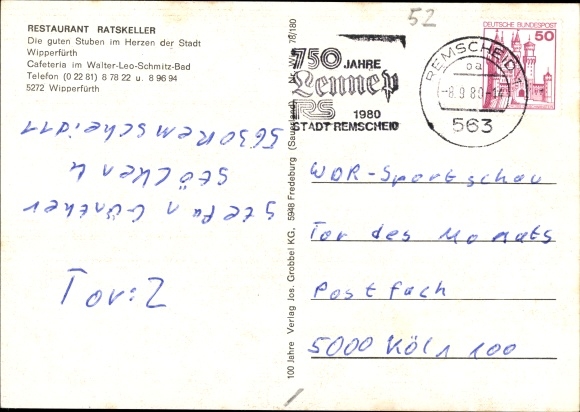 RESTAURANT RATSKELLER
Die guten Stuben im Herzen der Stadt
Wipperfürth
Cafeteria im Walter-Leo-Schmitz-Bad
Telefon (0 22 81) 8 78 22 u. 8 96 94
5272 Wipperfürth
52
750 JAHRE
Lennep
RS
1980
STADT REMSCHEID
REMSCHEID 1
oa
-8.9.80-14
563
DEUTSCHE BUNDESPOST
50
Stefan Günther
Stöcken 4
5630 Remscheid 11
Tor: 2
100 Jahre Verlag Jos. Grobbel KG, 5948 Fredeburg (Sauerland)
18/180
WDR-Sportschau
Tor des Monats
Postfach
5000 Köln 100